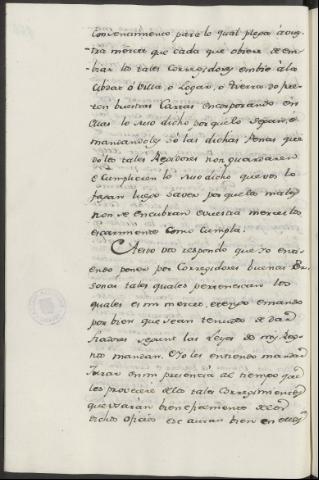 convenamiento para lo qual plega á vues
tra merced que cada que obiere de em
biar los tales Corregidores embie á la
Cibdad ó Villa, ó Logar, ó tierra do fue
ren buestras Cartas encorporando en
ellas lo suso dicho por que lo sepan, e
mandandoles só las dichas penas que
do los tales Regidores non guardaren
é Cumplieren lo suso dicho que vos lo
fagan luego saver porque los males
non se encubran é vuestra merced los
escarmiente como Cumpla.
A esto vos respondo que Yo enti
endo poner por Corregidores buenas Per
sonas tales quales pertenescan los
quales es mi merced, e tengo e mando
por bien que sean tenudos de dar
fiadores segunt las Leyes de mis Reg
nos mandan. E Yo les entiendo mandar
jurar en mi presencia al tiempo que
les proveiere de los tales Corregimientos
que usarán bien é fielmente de los
dichos oficios é se avrán bien en ellos